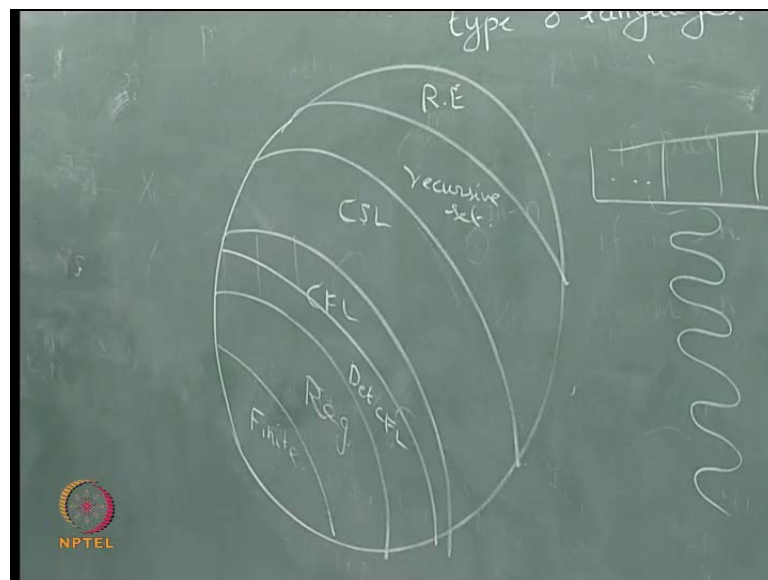 type 0 languages.
R.E
recursive
set.
CSL
CFL
Det CFL
Reg
Finite.
....
NPTEL